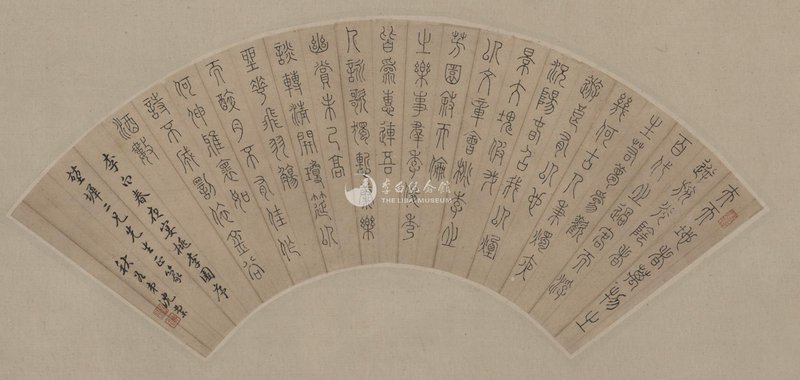 夫天地者萬物之
逆旅光陰者
百代之過客而浮
生若夢爲歡
幾何古人秉燭夜
遊良有以也
況陽春召我以煙
景大塊假我
以文章會桃李之
芳園敘天倫
之樂事羣季俊秀
皆爲惠連吾
人詠歌獨慚康樂
幽賞未已高
談轉清開瓊筵以
坐花飛羽觴
而醉月不有佳作
何伸雅懷如
詩不成罰依金谷
酒數
李白春夜宴桃李園序
墀二兄先生正篆
弟沈
李白纪念馆
THE LIBAI MUSEUM